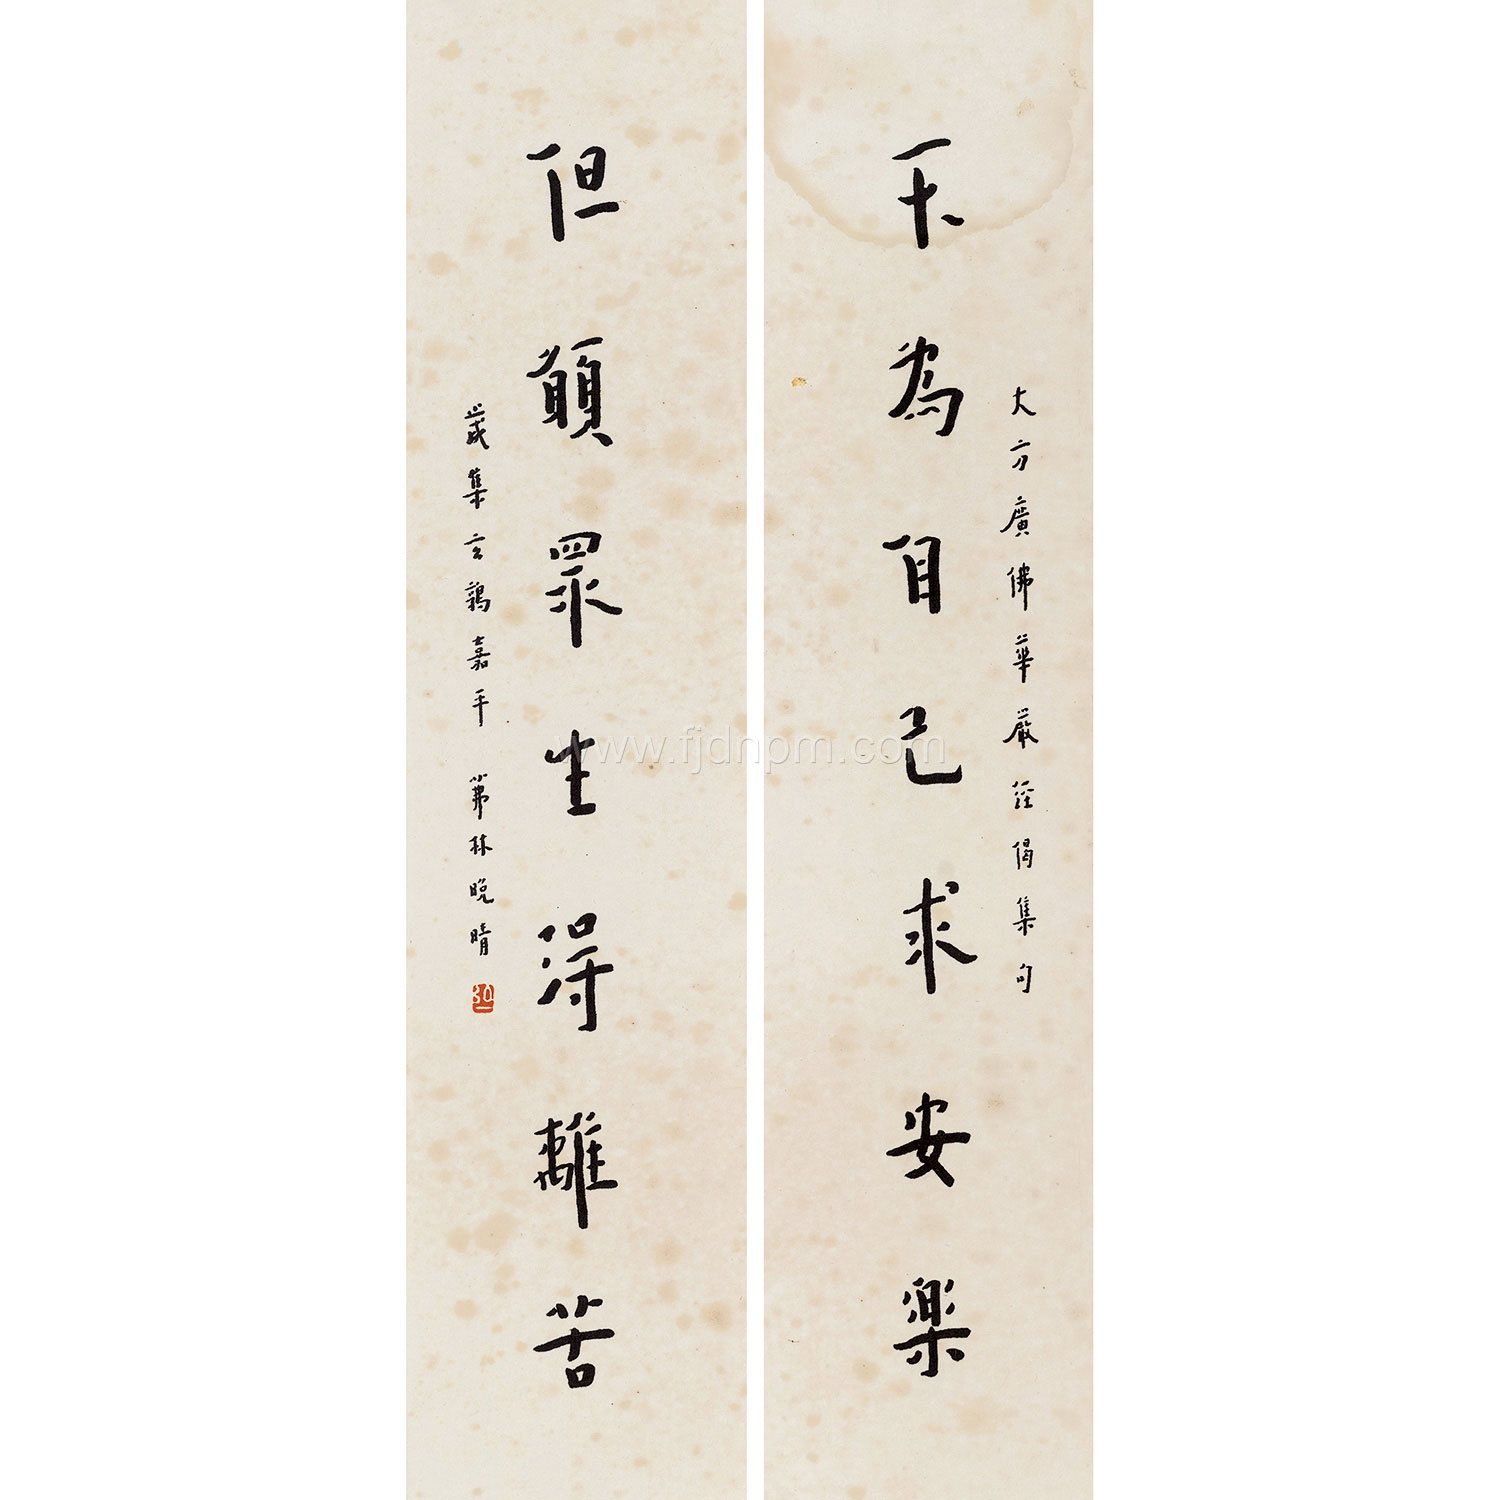 大方廣佛華嚴經偈集句
不為自己求安樂
但願眾生得離苦
歲集玄 嘉平 茀林晚晴
弘一
www.fjdnpm.com